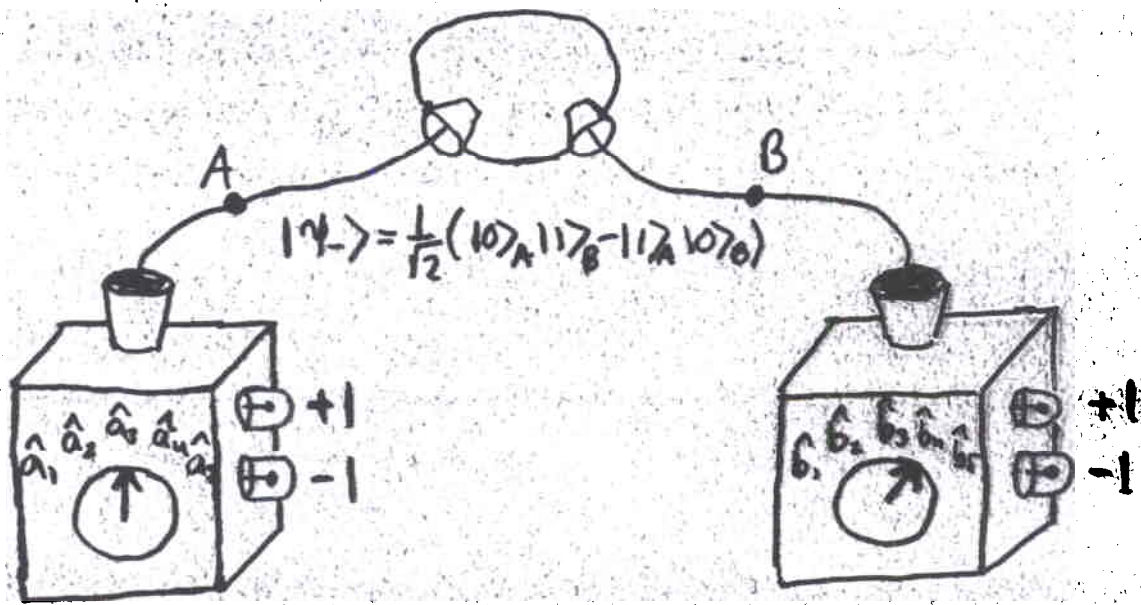 A B
|ψ₋⟩ = 1/√2 (|0⟩_A |1⟩_B - |1⟩_A |0⟩_B)
â₁ â₂ â₃ â₄ â₅
+1
-1
b̂₁ b̂₂ b̂₃ b̂₄ b̂₅
+1
-1